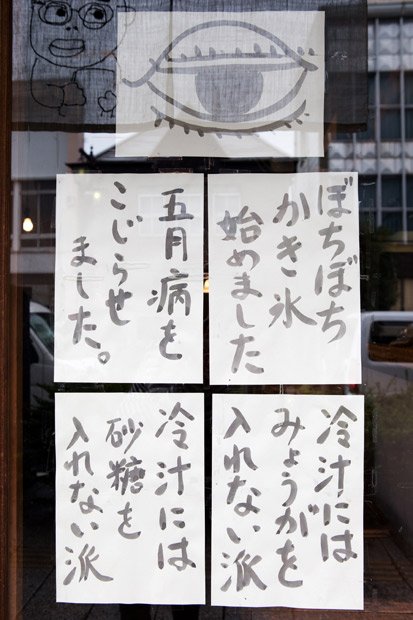 ぼちぼち
かき氷
始めました
五月病を
こじらせ
ました。
冷汁には
みょうがを
入れない派
冷汁には
砂糖を
入れない派